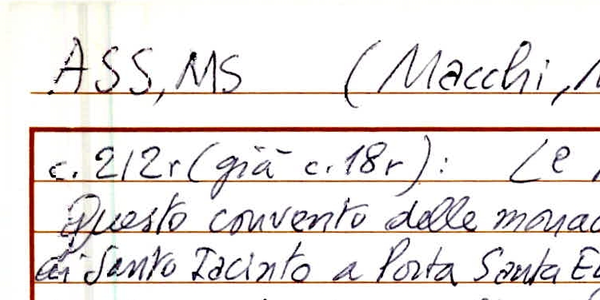 ASS, MS (Macchi,
c. 212r (già c. 18r): Le
Questo convento delle monac
di Santo Iacinto a Porta Santa Eu